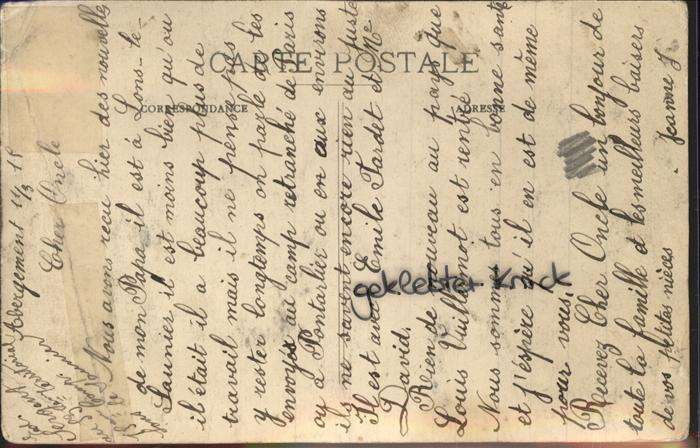 CARTE POSTALE
CORRESPONDANCE
ADRESSE
Abergement 11/3 15
Cher Oncle
Nous avons reçu hier des nouvelles
de mon Papa il est à Lons-le-
Saunier il est moins bien qu'où
il était il a beaucoup plus de
travail mais il ne pense pas
y rester longtemps on parle de les
envoyés au camp retranché de Paris
ou à Pontarlier ou en aux environs
ils ne savent encore rien du juste
Il est avec Emile Tardt et Mr
David.
Rien de nouveau au pays que
Louis Vuillemot est rentré
Nous sommes tous en bonne santé
et j'espère qu'il en est de même
pour vous.
Recevez Cher Oncle un bonjour de
toute la famille et les meilleurs baisers
de vos petites nièces
Jeanne J
geklebter Knick